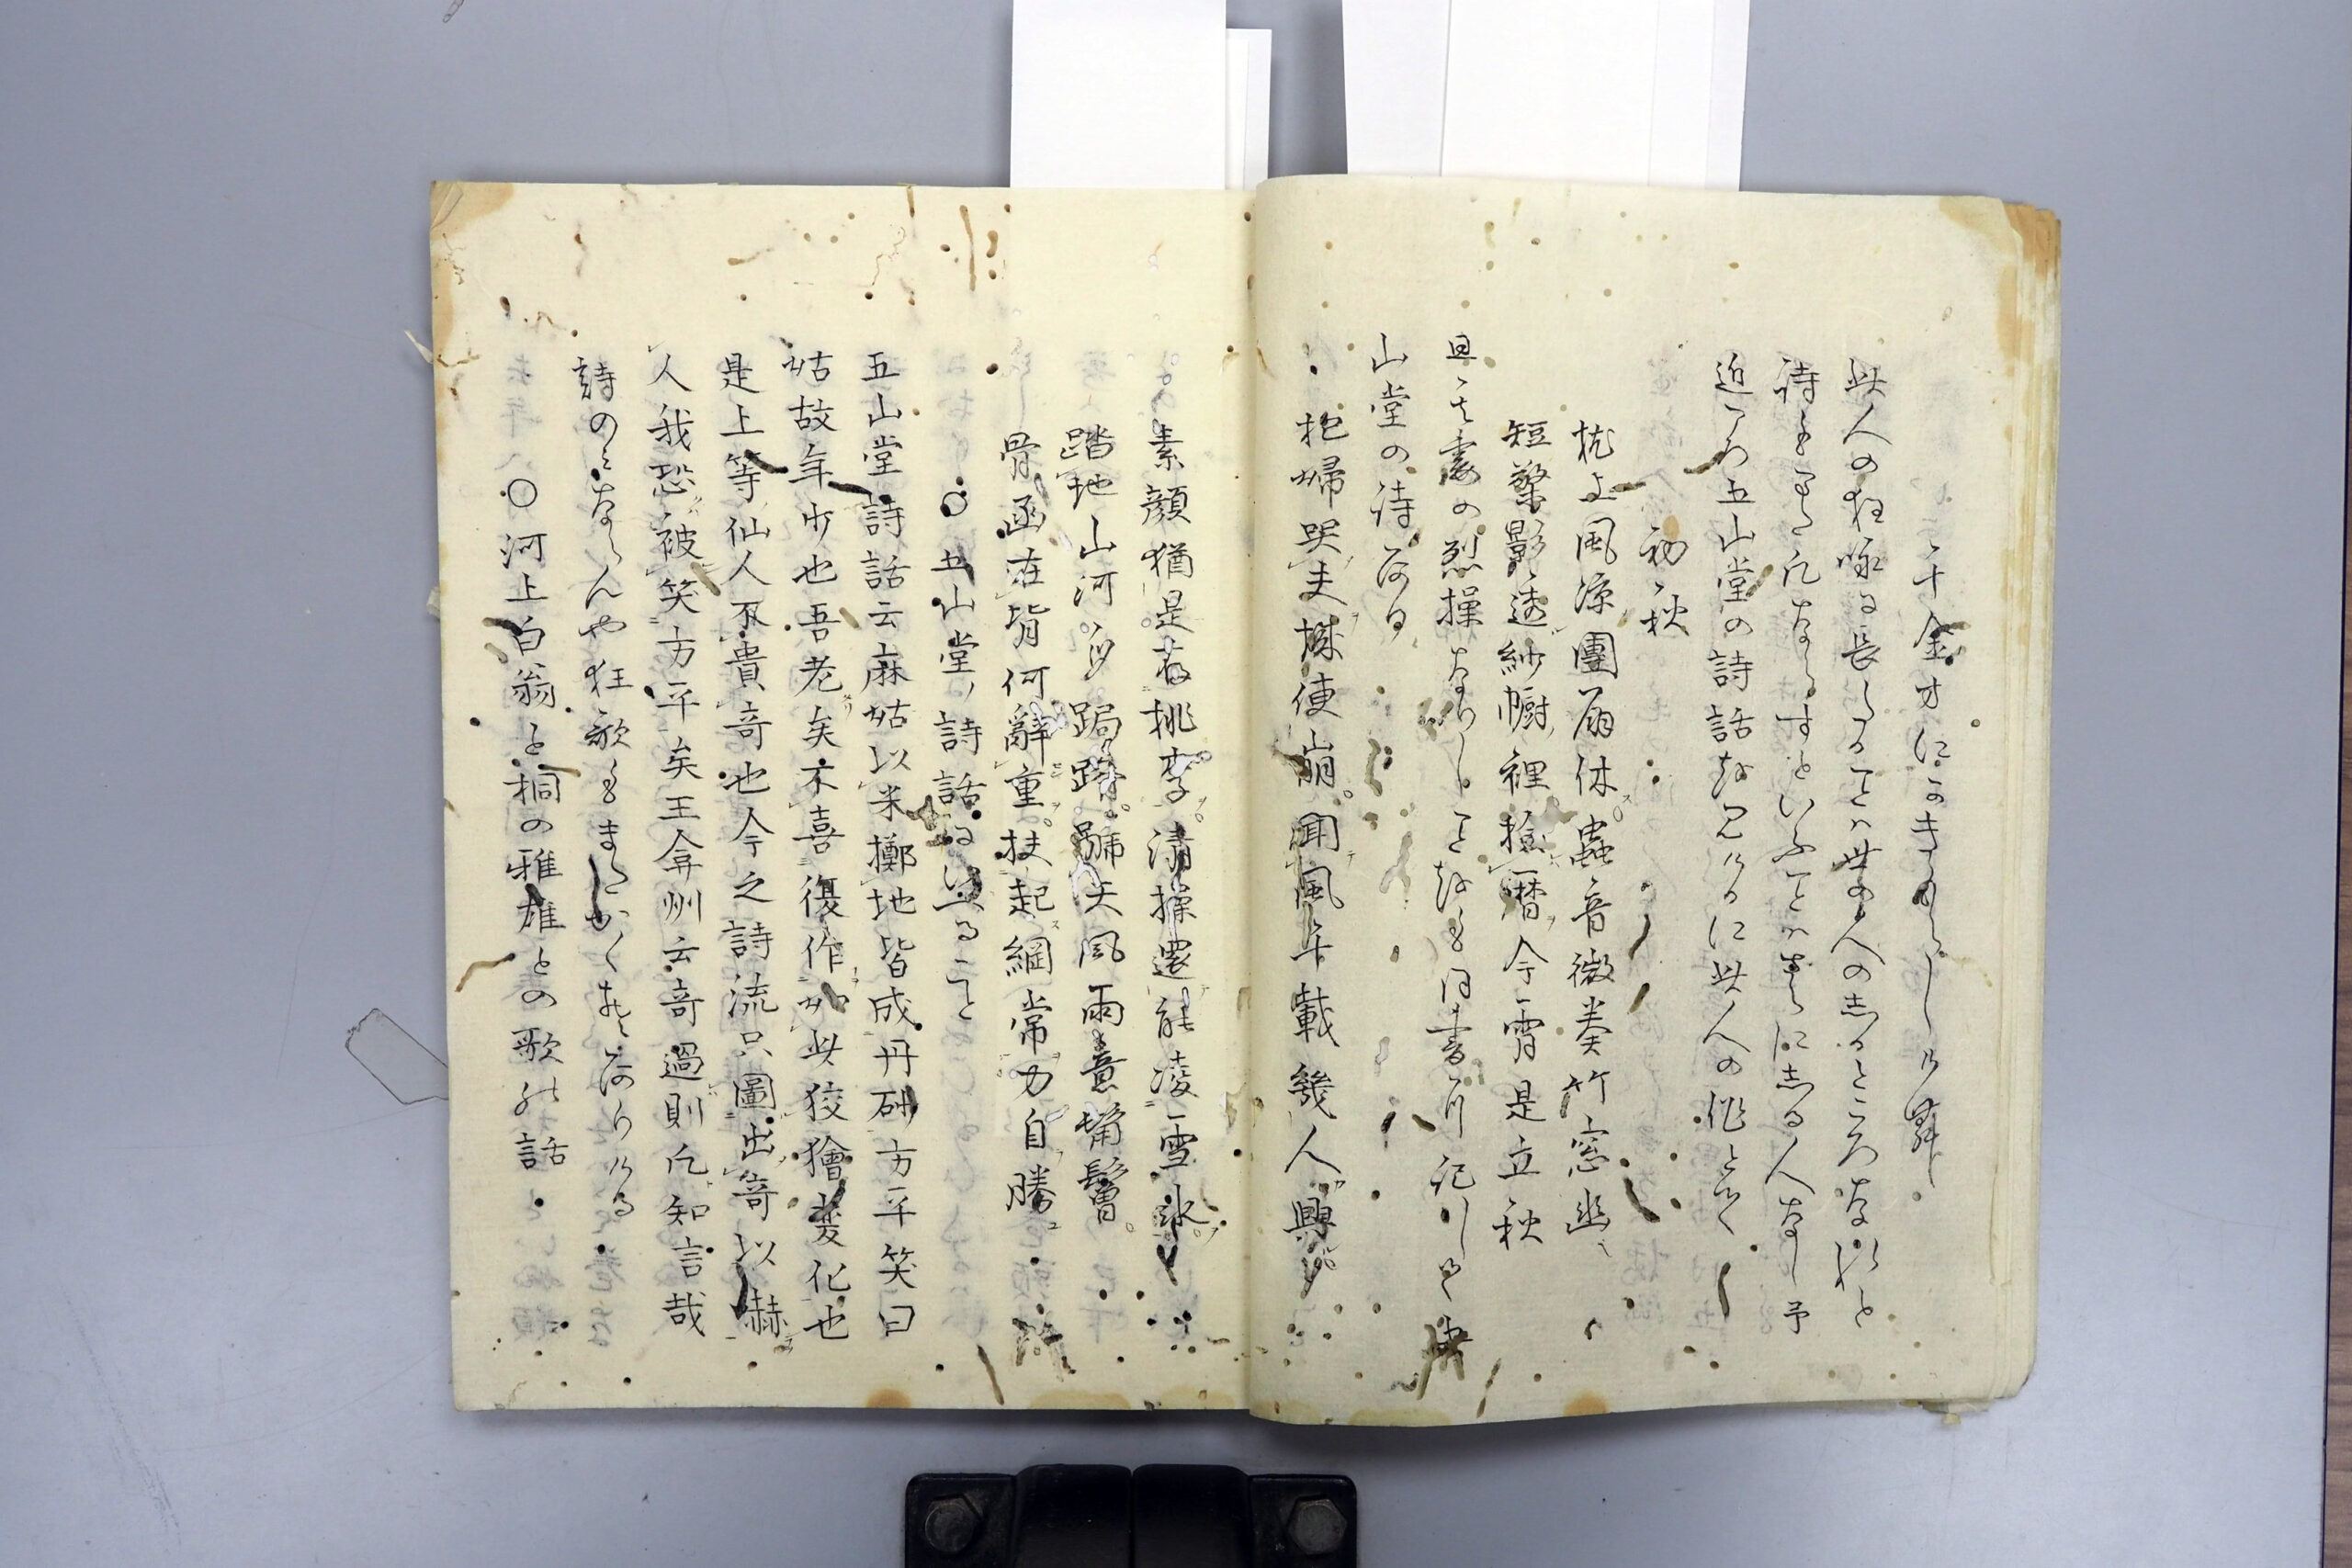 千金才にかきならしけり
此人の狂咏に長しることハ世の人の志るところなれと
詩もまた凡ならすといふことハさらに志る人なし予
近ころ五山堂の詩話を见けるに此人の作とて
初秋
枕上風凉團扇休蟲音微奏竹窓幽
短檠影透紗幮裡撿暦今宵是立秋
且其妻の烈操なりしことをも同書ニ記して
山堂の詩あり
抱婦哭夫城使崩聞風千載幾人興
素顔猶是若桃李清操還能凌雪氷
踏地山河跼蹐號天風雨意鬅鬙
骨函在背何辭重扶起綱常力自勝
○五山堂詩話にいへること
五山堂詩話云麻姑以米擲地皆成丹砂方平笑曰
姑故年少也吾老矣不喜復作如此狡獪変化也
是上等仙人不貴奇也今之詩流只圖出奇以嚇
人我恐被笑方平矣王弇州云奇過則凡知言哉
詩のミならんや狂歌もまたかくそありける
○河上白翁と桐の雅雄との歌の話